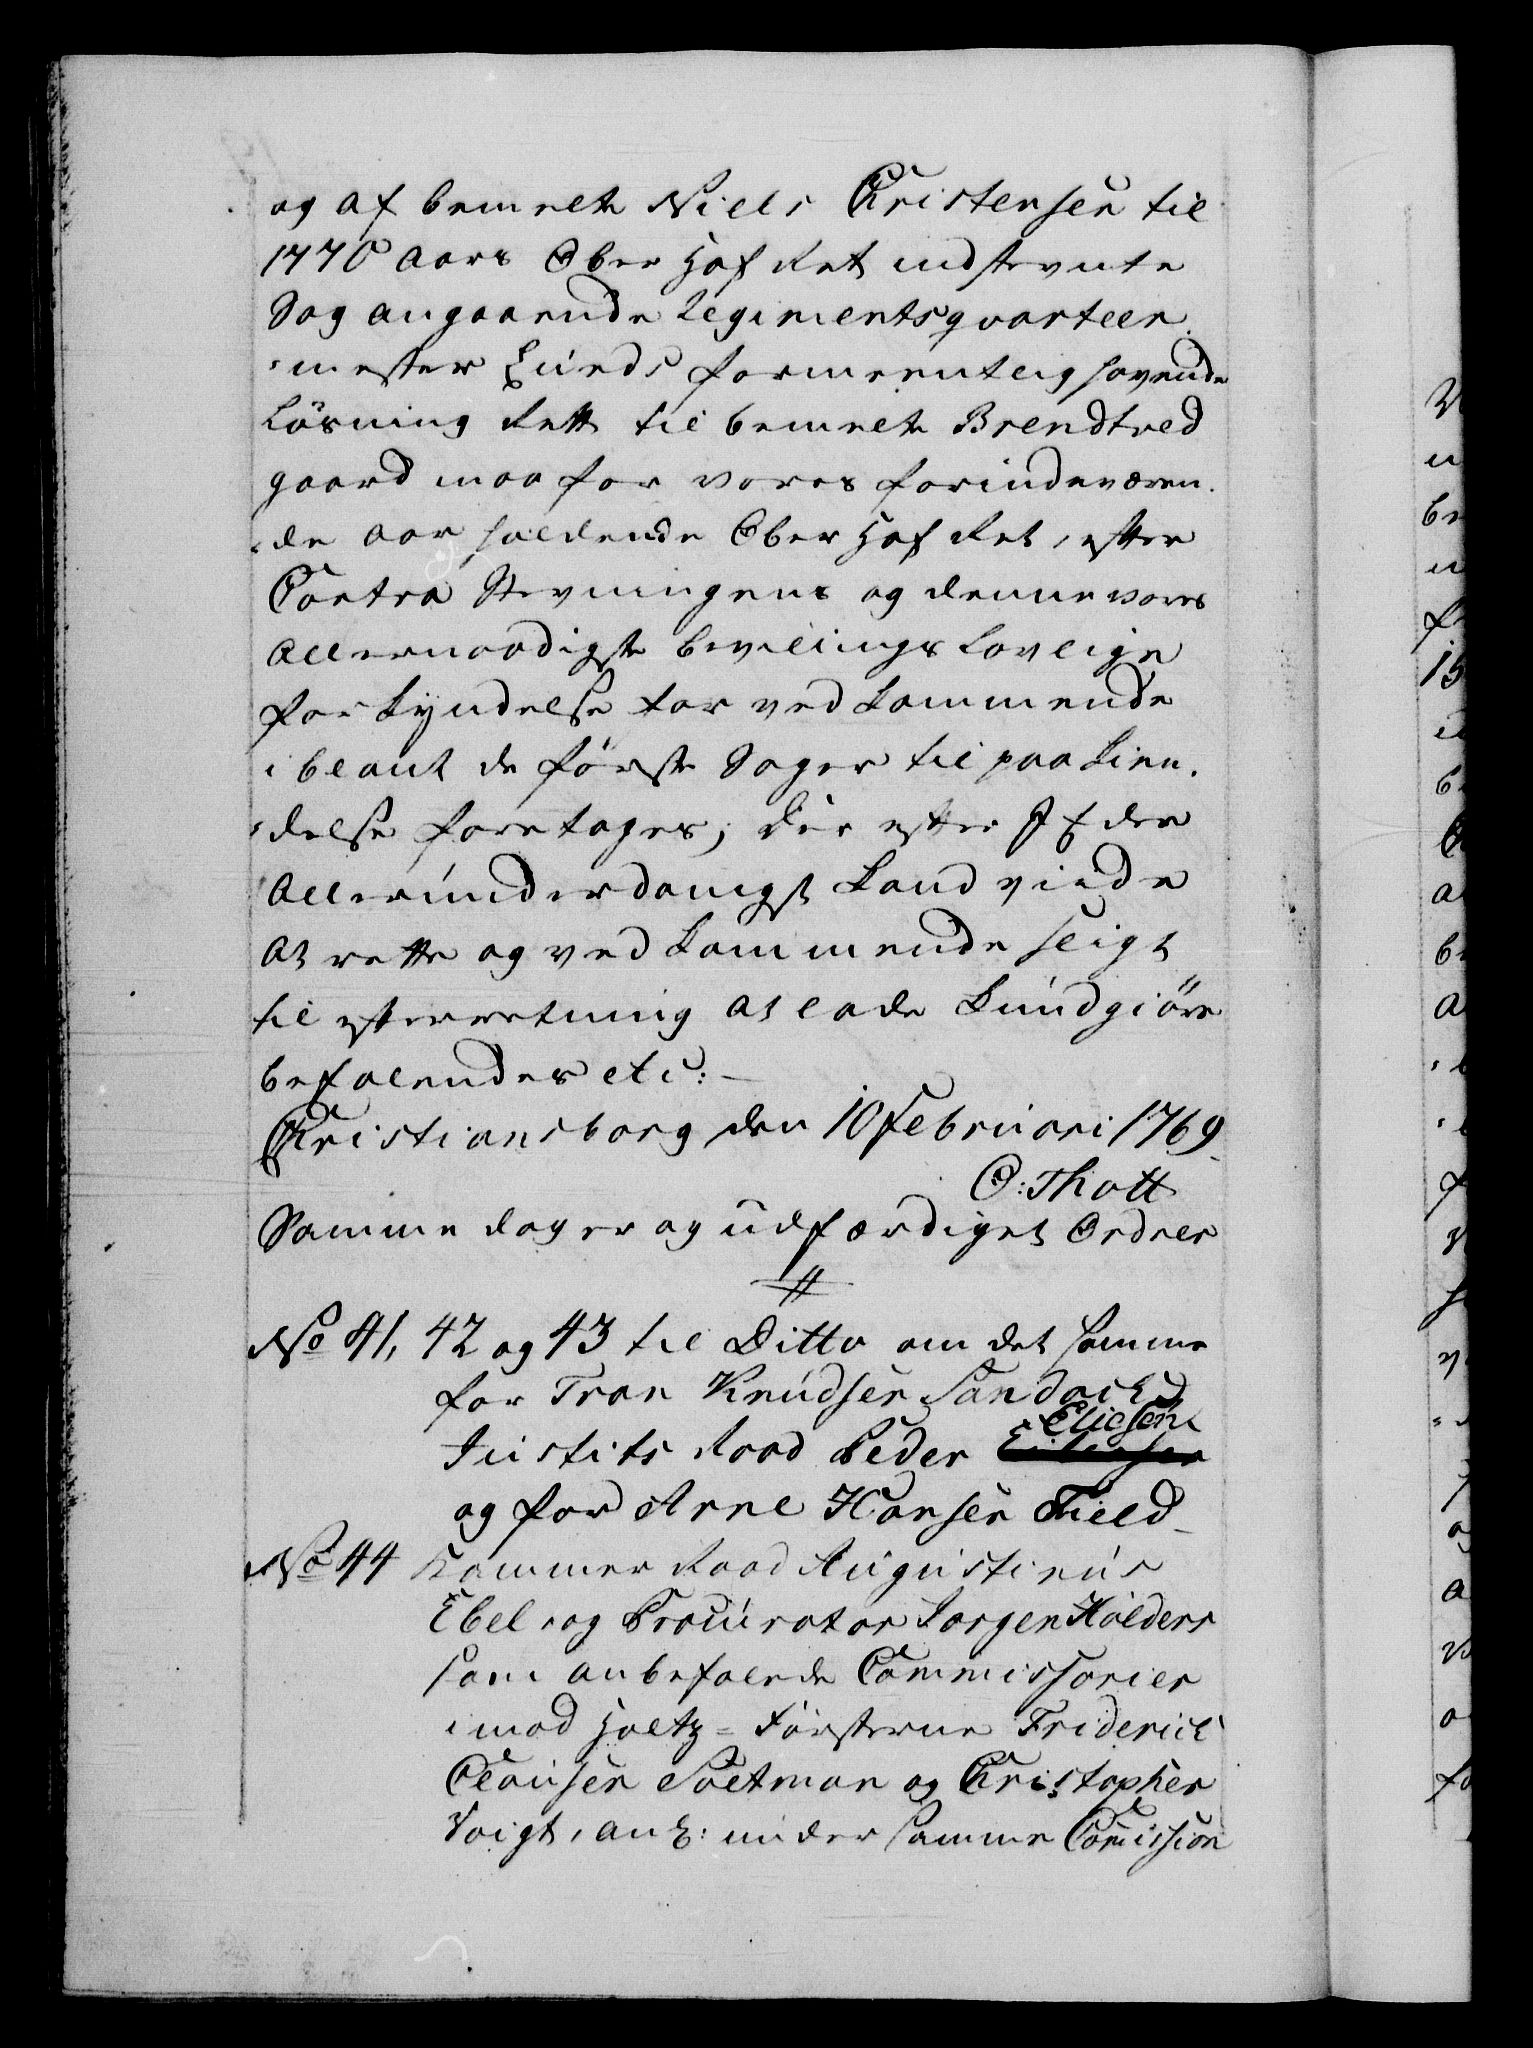 og af bemelte Niels Christensen til
1770 Aars Ober Hof Ret indstevnte
Sag angaaende Regimentsqvarteer
mester Lunds formeentlig havende
Løsning Rett til bemelte Brendtved
gaard maa for vores forindeværen-
de Aar holdende Ober Hof Ret, efter
Contra Stevningens og denne vores
Allernaadigste bevilings Lovlige
forkyndelse for ved kommende
iblant de første Sager til paa kien-
delse foretages; Der efter I Eder
Allerunderdanigst kand viide
at rette og ved kommende sligt
til efterretning at lade kundgiøre
befalendes etc: —
Christiansborg den 10 Februari 1769
O: Thott
Samme dag er og udfærdiget Ordrer
No 41, 42 og 43 til Ditto om det samme
for Tron Knudsen
Justits Raad Peder Eliesen
og for Arne Hansen Field
No 44 Kammer Raad Augustinus
Ebel og Procurator Jørgen Holders
som anbefalede Commissarier
imod Holtz-Førsterne Friderich
Clausen Soetman og Christopher
Voigt, anl: under samme Comission